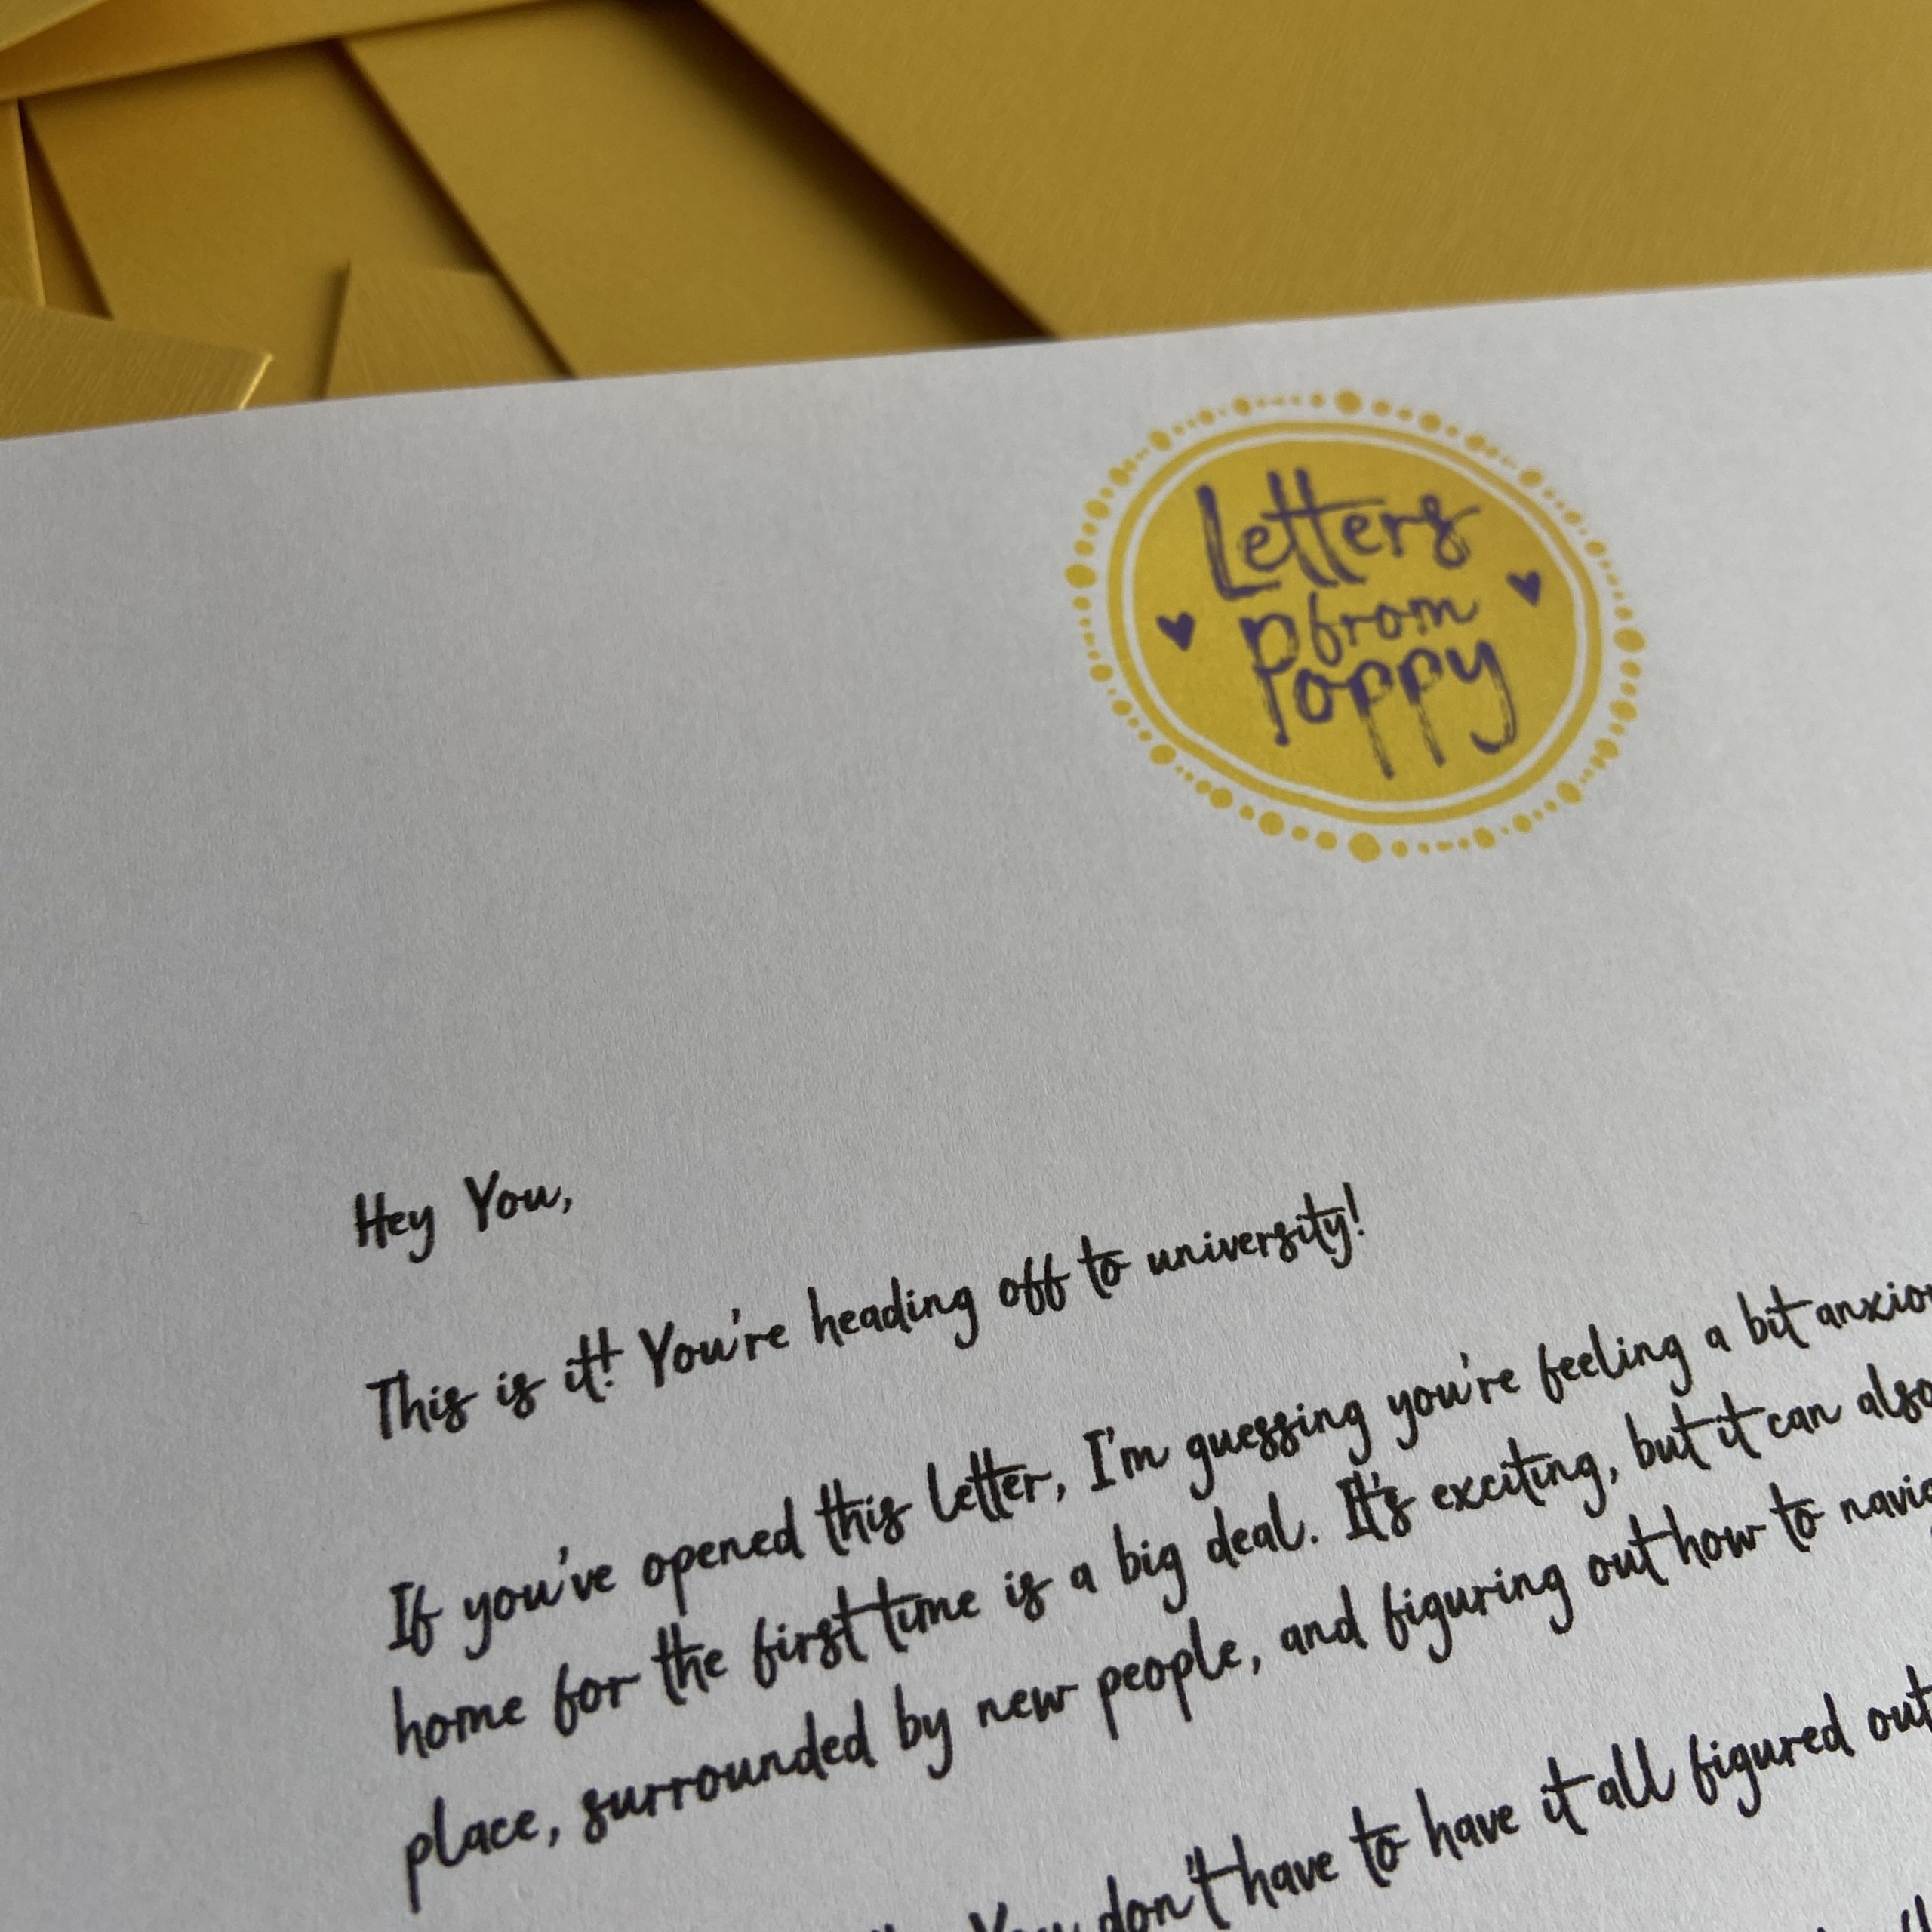 Letters
from
Poppy
Hey You,
This is it! You're heading off to university!
If you've opened this letter, I'm guessing you're feeling a bit
home for the first time is a big deal. It's exciting, but it can also
place, surrounded by new people, and figuring out how to
don't have to have it all figured out